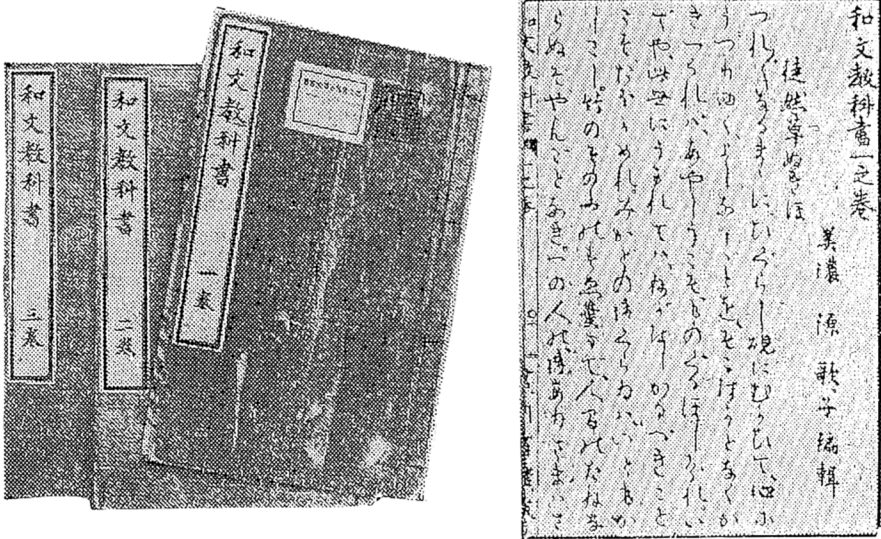 和文教科書 一巻
和文教科書 二巻
和文教科書 三巻
和文教科書一之巻
美濃 源 歌子 編輯
徒然草ぬきほ
つれ〴〵なるまゝに、ひぐらし硯にむかひて、心に
うつりゆくよしなしことを、そこはかとなくか
きつくれバ、あやしうこそものぐるほしけれ。い
でや、此世にうまれてハ、ねがはしかるべきこと
こそおほかめれ。みかどの御くらゐハ、いともか
しこし。竹のそのふの、すゑ葉まで、人間のたねな
らぬぞやんごとなき。一の人の御ありさまハさ
和文教科書 一之巻